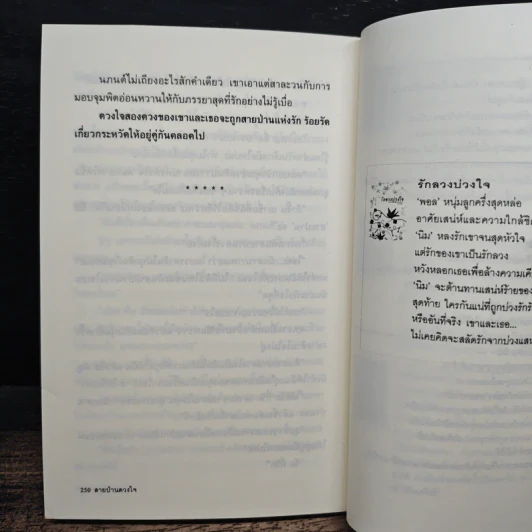 นภนต์ไม่เถียงอะไรสักคำเดียว เขาเอาแต่สาละวนกับการ
มอบจุมพิตอ่อนหวานให้กับภรรยาสุดที่รักอย่างไม่รู้เบื่อ
ดวงใจสองดวงของเขาและเธอจะถูกสายป่านแห่งรัก ร้อยรัด
เกี่ยวกระหวัดให้อยู่คู่กันตลอดไป
* * * * *
250 สายป่านดวงใจ
รักลวงบ่วงใจ
'พอล' หนุ่มลูกครึ่งสุดหล่อ
อาศัยเสน่ห์และความใกล้ชิด
'นิม' หลงรักเขาจนสุดหัวใจ
แต่รักของเขาเป็นรักลวง
หวังหลอกเธอเพื่อล้างความแค้
'นิม' จะต้านทานเสน่ห์ร้ายของ
สุดท้าย ใครกันแน่ที่ถูกบ่วงรักรั
หรืออันที่จริง เขาและเธอ...
ไม่เคยคิดจะสลัดรักจากบ่วงเสน